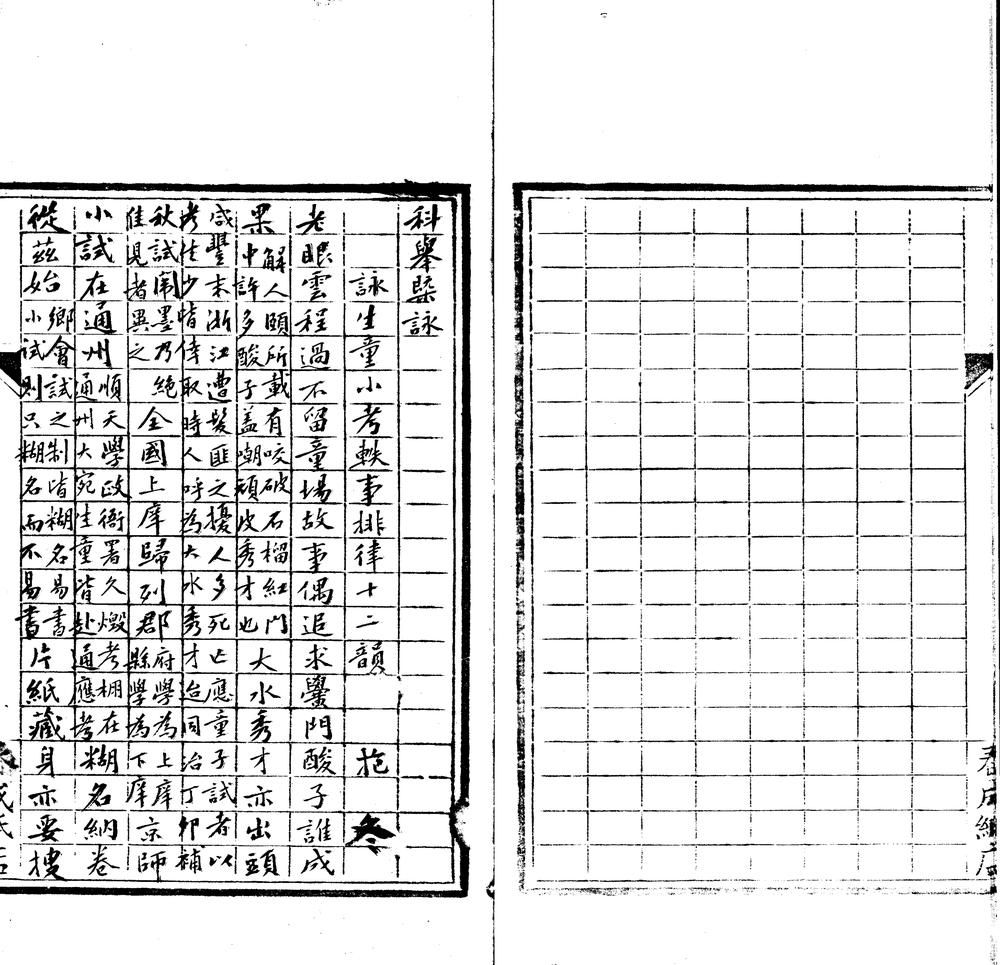 科舉槩詠
詠生童小考軼事排律十二韻 抱冬
老眼雲程過不留童場故事偶追求黌門酸子誰成
果解人頤所載有咬破石榴紅門中許多酸子盖嘲頑皮秀才也大水秀才亦出頭
咸豐末浙江遭髮匪之擾人多死亡應童子試者以
考生少皆倖取時人呼為大水秀才迨同治丁卯補
秋試闈墨乃絕佳見者異之全國上庠歸列郡府學為上庠縣學為下庠京師
小試在通州順天學政衙署久燬考棚在通州大宛生童皆赴通應考糊名納卷
從茲始鄉會試之制皆糊名易書小試則只糊名而不易書片紙藏身亦要搜